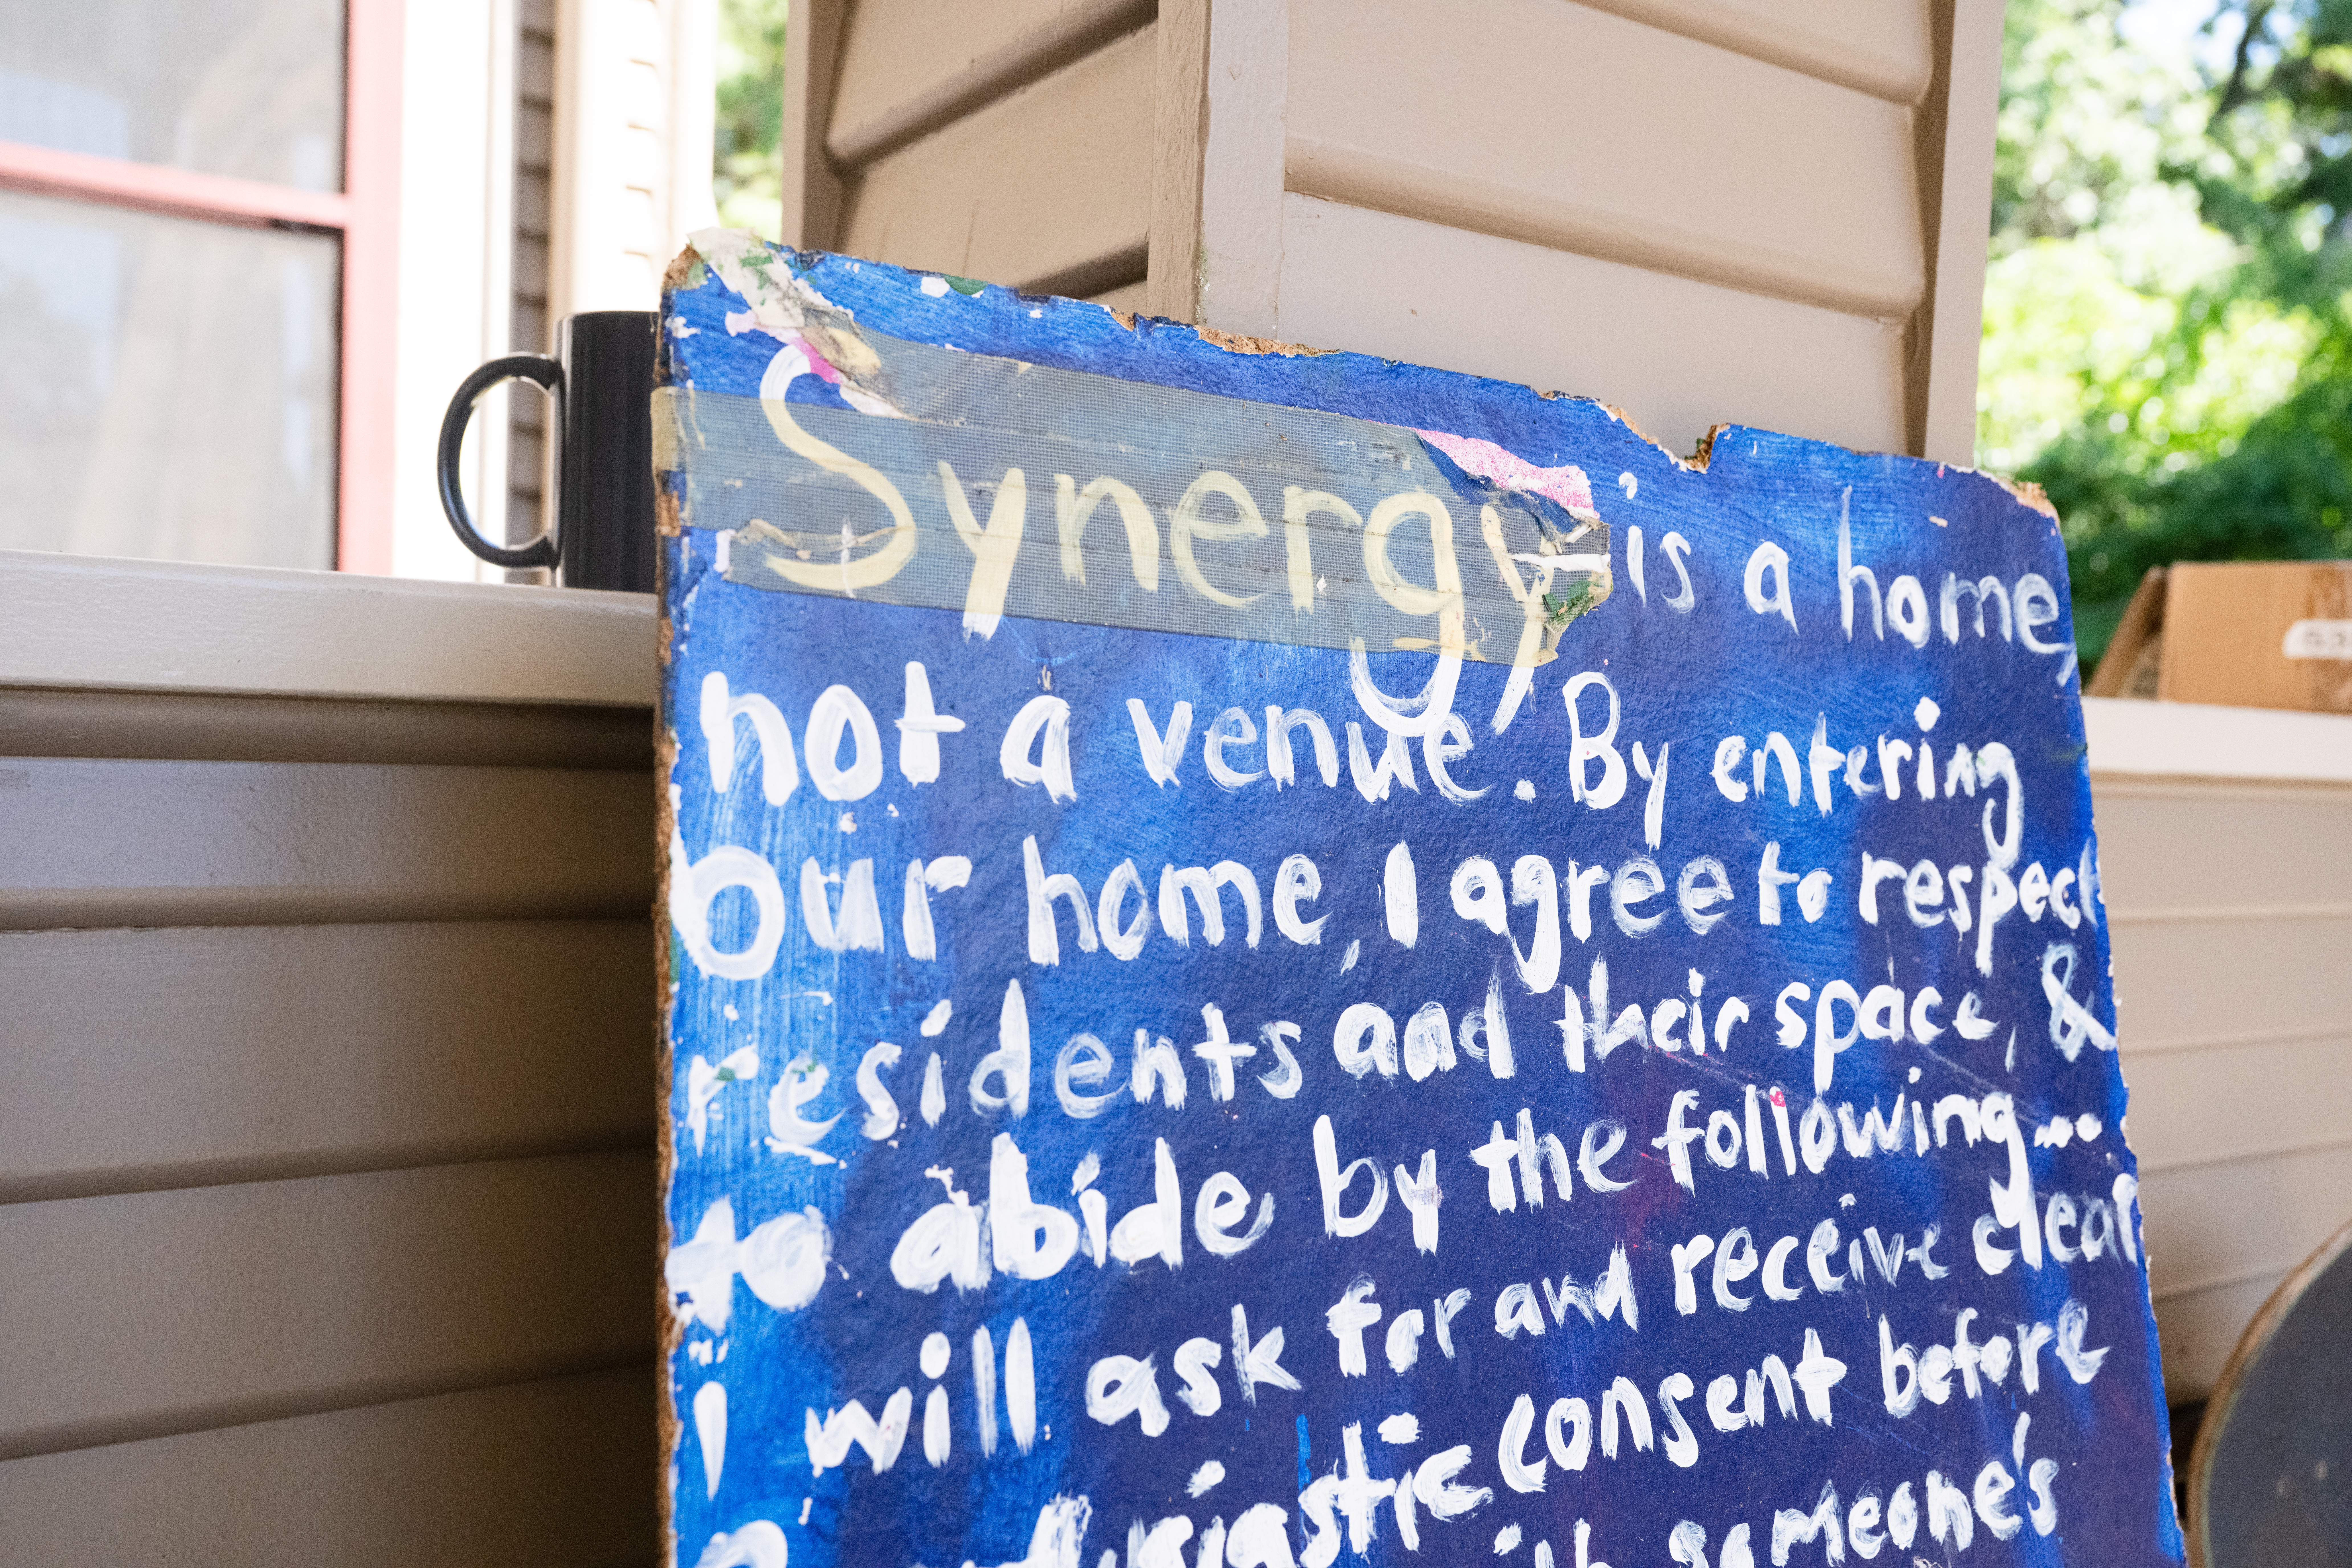 Synergy is a home,
not a venue. By entering
Our home, I agree to respect
residents and their space, &
to abide by the following...
I will ask for and receive clear
enthusiastic consent before
someone's